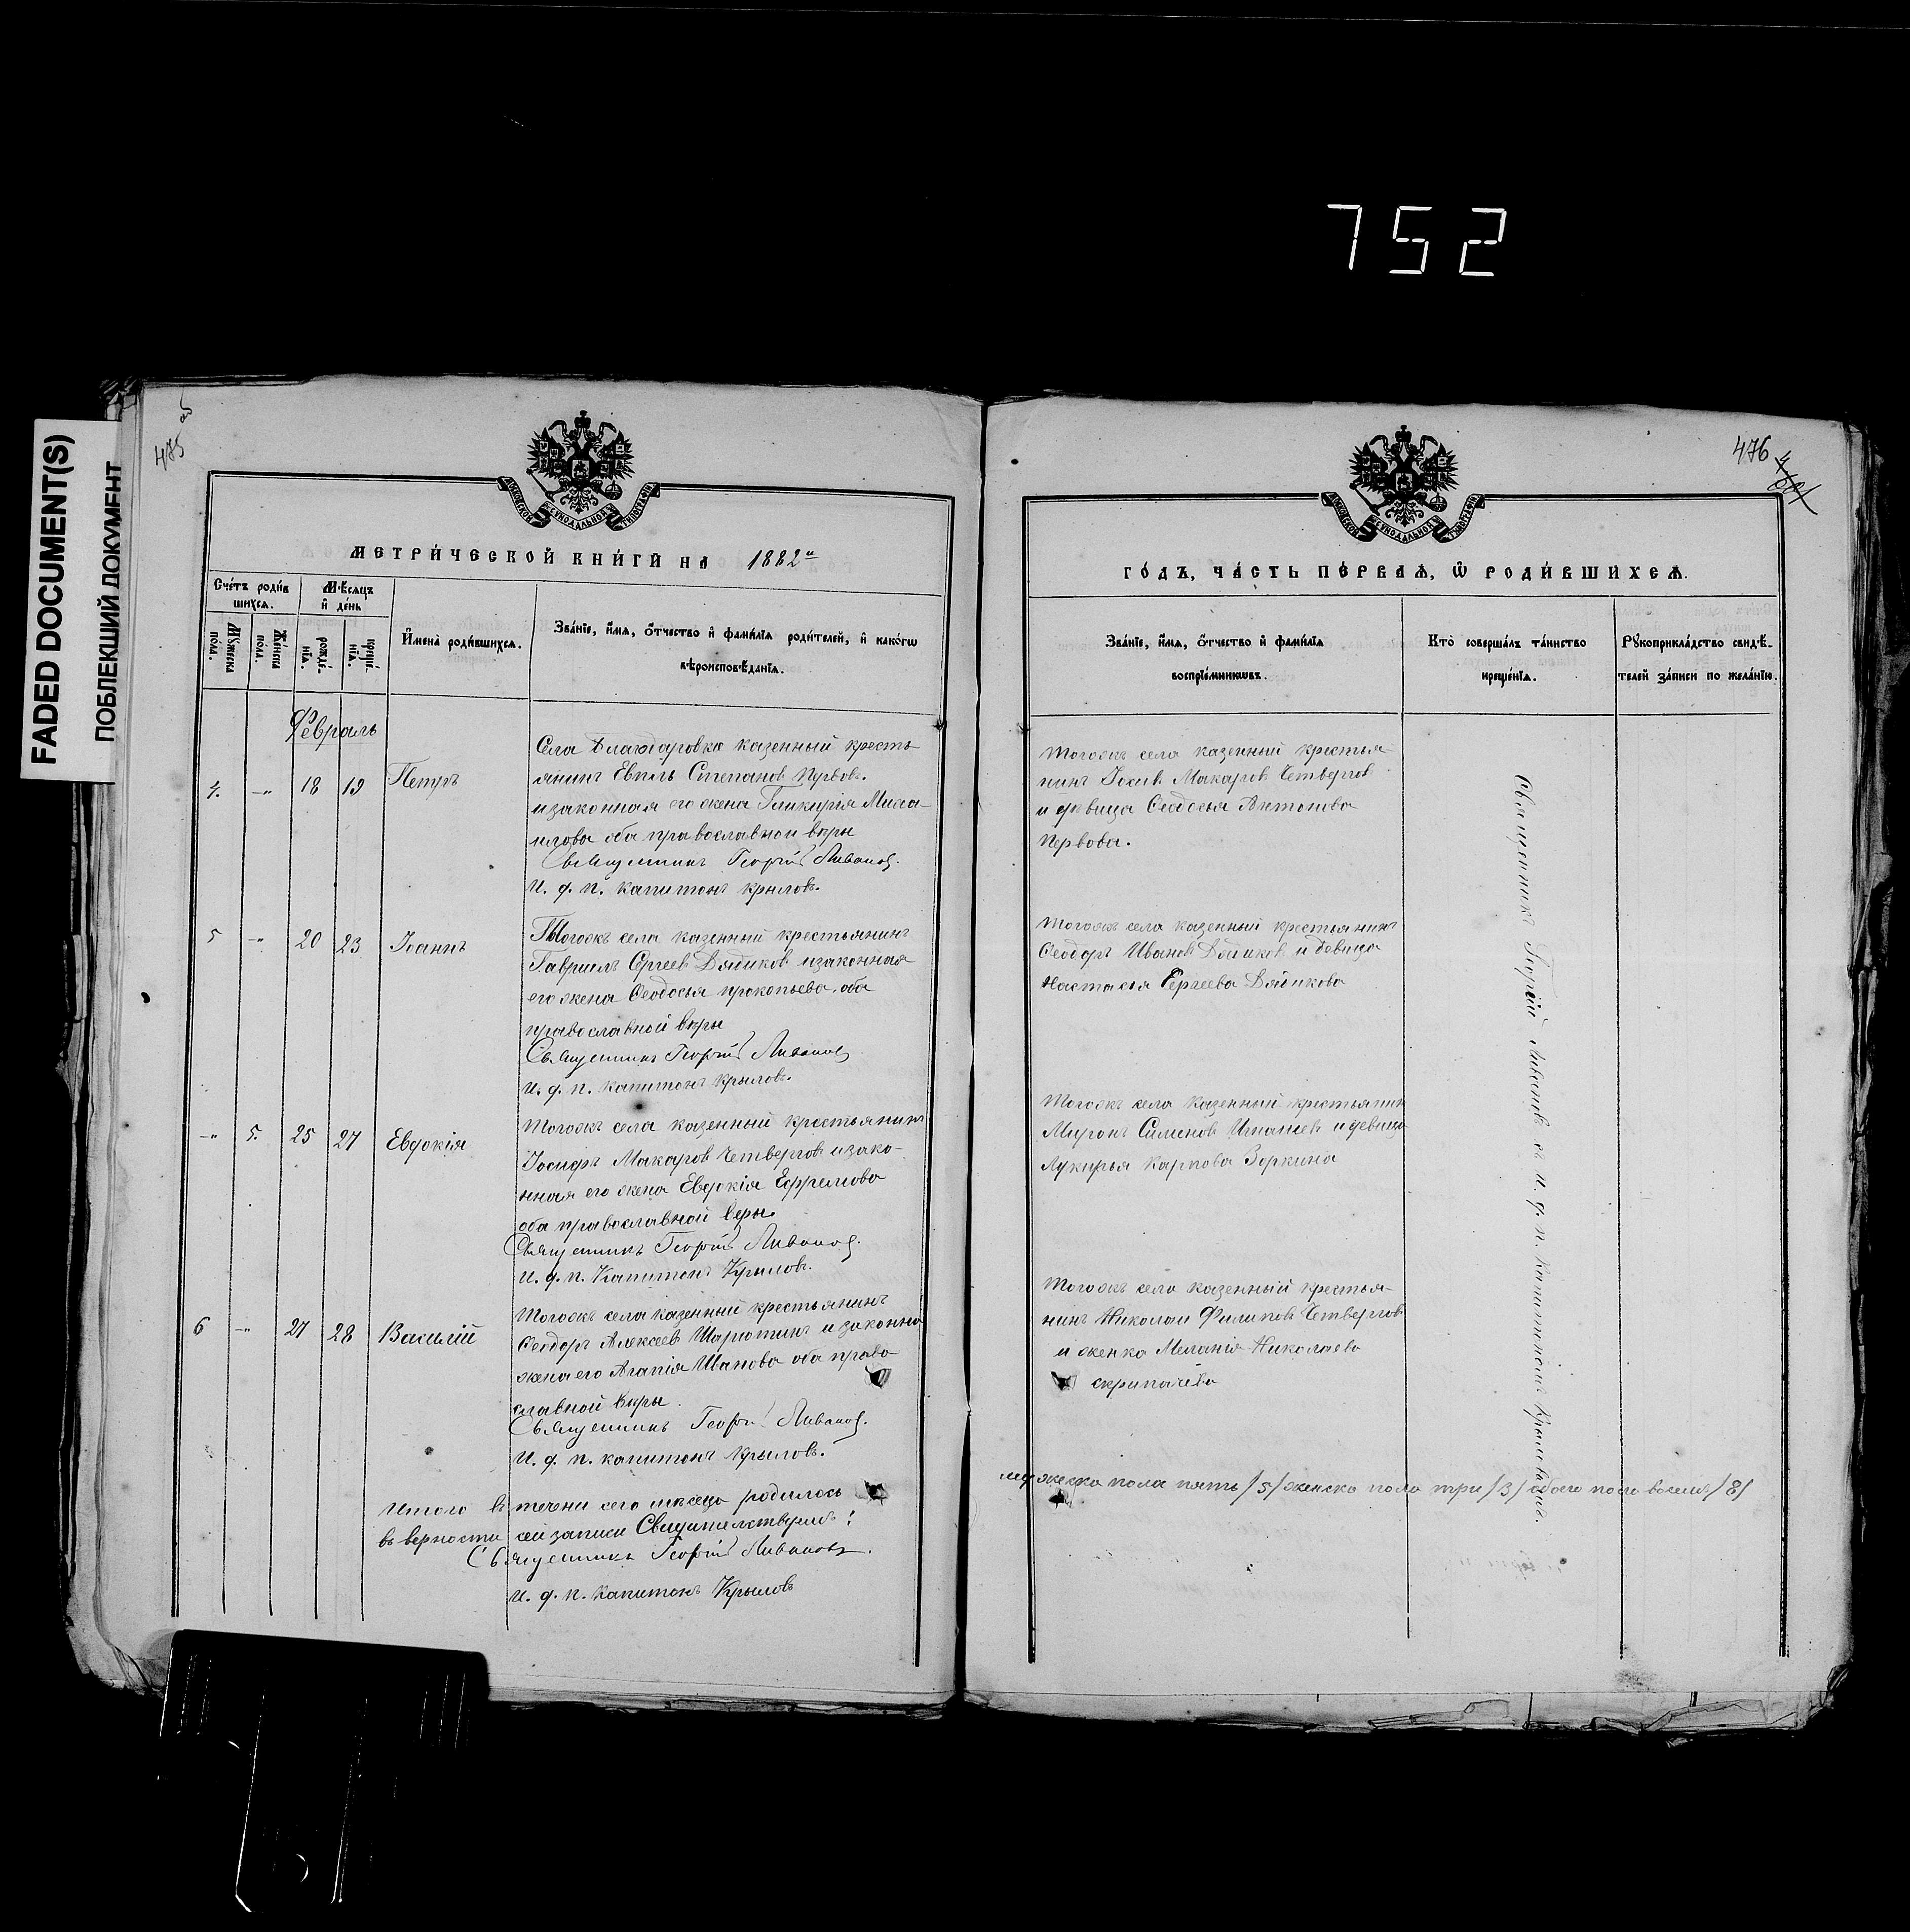 752
FADED DOCUMENT(S)
ПОБЛЕКШИЙ ДОКУМЕНТ
475 об
МЕТРИ́ЧЕСКОЙ КНИ́ГИ НА 1882й
Сче́тъ роди́в
шихся.
Мѣ́сяцъ
и҆ де́нь
Му́жеска
по́ла.
Же́нска
по́ла.
рожде́-
нія.
креще́-
нія.
И҆мена̀ роди́вшихся.
Зва́ніе, и҆́мя, ѻ҆́тчество и҆ фами́лія роди́телей, и҆ како́гѡ
вѣроисповѣ́данія.
Февраль
4. -„- 18 19 Петръ
Села Благодаровки казенный кресть
янинъ Евпль Степановъ Первовъ.
и законная его жена Гликирія Миха-
илова оба православной вѣры
Священникъ Георгій Ливановъ.
И. д. п. Капитонъ Крыловъ.
5 -„- 20 23 Іоаннъ
Тогожъ села казенный крестьянинъ
Гавріилъ Сергеевъ Дядиковъ и законная
его жена Ѳеодосья Прокопьева, оба
православной вѣры
Священникъ Георгій Ливановъ
И. д. п. Капитонъ Крыловъ.
-„- 5. 25 27 Евдокія
Тогожъ села казенный крестьянинъ
Іосифъ Макаровъ Четверговъ и зако-
нная его жена Евдокія Ефремова
оба православной веры
Священникъ Георгій Ливановъ.
И. д. п. Капитонъ Крыловъ.
6 -„- 27 28 Василій
Тогожъ села казенный крестьянинъ
Ѳеодоръ Алексеевъ и законна
жена его Агапія Иванова оба право
славной вѣры.
Священникъ Георгій Ливановъ.
И. д. п. Капитонъ Крыловъ.
Итого въ течени сего мѣсеца родилось
въ верности сей записи Свидительствуемъ:
Священникъ Георгій Ливановъ.
И. д. п. Капитонъ Крыловъ
476
ГО́ДЪ, ЧА́СТЬ ПЕ́РВАЯ, Ѡ҆ РОДИ́ВШИХСЯ.
Зва́ніе, и҆́мя, ѻ҆́тчество и҆ фами́лія
воспріе́мникѡвъ.
Кто̀ соверша́лъ та́инство
креще́нія.
Рꙋкоприкла́дство свидѣ́-
телей за́писи по жела́нію.
Тогожъ села казенный крестья-
нинъ Іосивъ Макаровъ Четверговъ
и девица Ѳеодосья Антонова
Первова.
Тогожъ села казенный крестьянинъ
Ѳеодоръ Ивановъ Дядиковъ и девица
Настасья Сергеева Дядикова
Тогожъ села казенный крестьянин
Миронъ и девица
Лукирья Карпова Зоркина
Тогожъ села казенный крестья-
нинъ Николай Филиповъ Четверговъ
и женка Меланія Николаева
Скрипачева
Священникъ Георгій Ливановъ съ и. д. п. Капитономъ Крыловымъ.
мужеска пола пять /5/ женска пола три /3/ обоего пола восемь /8/